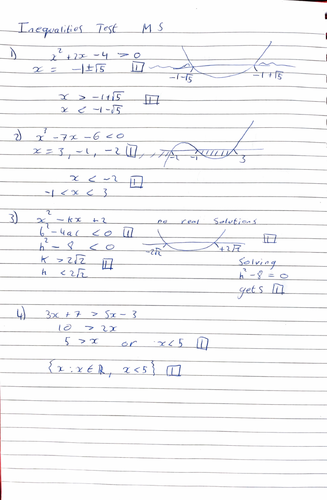 Inequalities Test MS
1) x² + 2x - 4 > 0
x = -1 ± √5 [1] -1-√5 -1+√5
x > -1+√5 [1]
x < -1-√5
2) x³ - 7x - 6 < 0
x = 3, -1, -2 [1] -2 -1 3
x < -2 [1]
-1 < x < 3
3) x² - kx + 2 no real solutions
b² - 4ac < 0 [1] [1]
k² - 8 < 0 -2√2 +2√2
k > 2√2 [1] Solving
k < 2√2 k² - 8 = 0
gets [1]
4) 3x + 7 > 5x - 3
10 > 2x
5 > x or x < 5 [1]
{x : x ∈ ℝ, x < 5} [1]